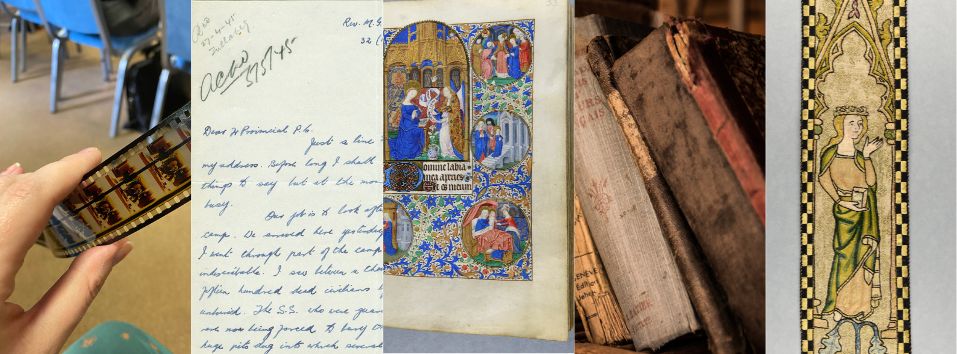 27-4-45
Acko
3/5/45
Rev. M.
32
Dear Fr Provincial P.C.
Just a line
my address. Before long I shall
things to say but at the mom
busy.
Our job is to look afte
camp. We arrived here yesterday
I went through part of the camp
indescribable. I saw between a thou
fifteen hundred dead civilians l
unburied. The S.S. who were guar
are now being forced to bury
huge pits dug into which several
Domine labia
mea aperies
Et os meum
URS
GAIS
GENÈVE
Édition